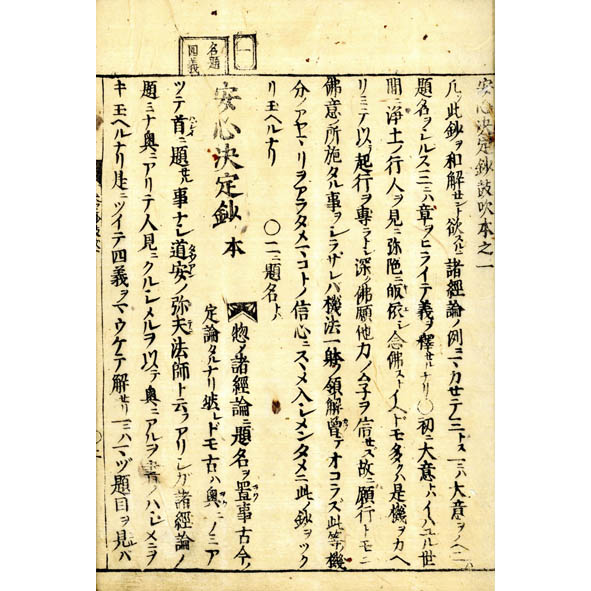 一
名題
四義
安心決定鈔鼓吹本之一
凡ソ此鈔ヲ和解セント欲スルニ諸經論ノ例ニマカセテ三トス一ニハ大意ヲノヘ二ニ
題名ヲシルス三ニハ章ヲヒライテ義ヲ釋セルナリ〇初ニ大意トハイハユル世
間ノ淨土ノ行人ヲ見ニ弥陀ニ皈依シ念佛ストイヘドモ多クハ是機ヲカヘ
リミテ以テ起行ヲ專ラトシ深ク佛願他力ノムネヲ信セズ故ニ願行トモニ
佛意ノ所施タル事ヲシラザレバ機法一躰ノ領解曾テオコラズ此等ノ機
分ノアヤマリヲアラタメマコトノ信心ニスヽメ入シメンタメニ此ノ鈔ヲツク
リ玉ヘルナリ 〇二ニ題名トハ
安心決定鈔 本
惣ノ諸經論ニ題名ヲ置事古今ノ
定論タルナリ然レドモ古ハ奥ニノミア
ツテ首ニ題セル事ナシ道安ノ弥夫法師ト云フアリシガ諸經論ノ
題ミナ奥ニアリテ人見ニクルシメルヲ以テ奥ニアルヲ書ノハシメニヲ
キ玉ヘルナリ是ニツイテ四義ヲマウケテ解セリ一ニハマヅ題目ヲ見バ